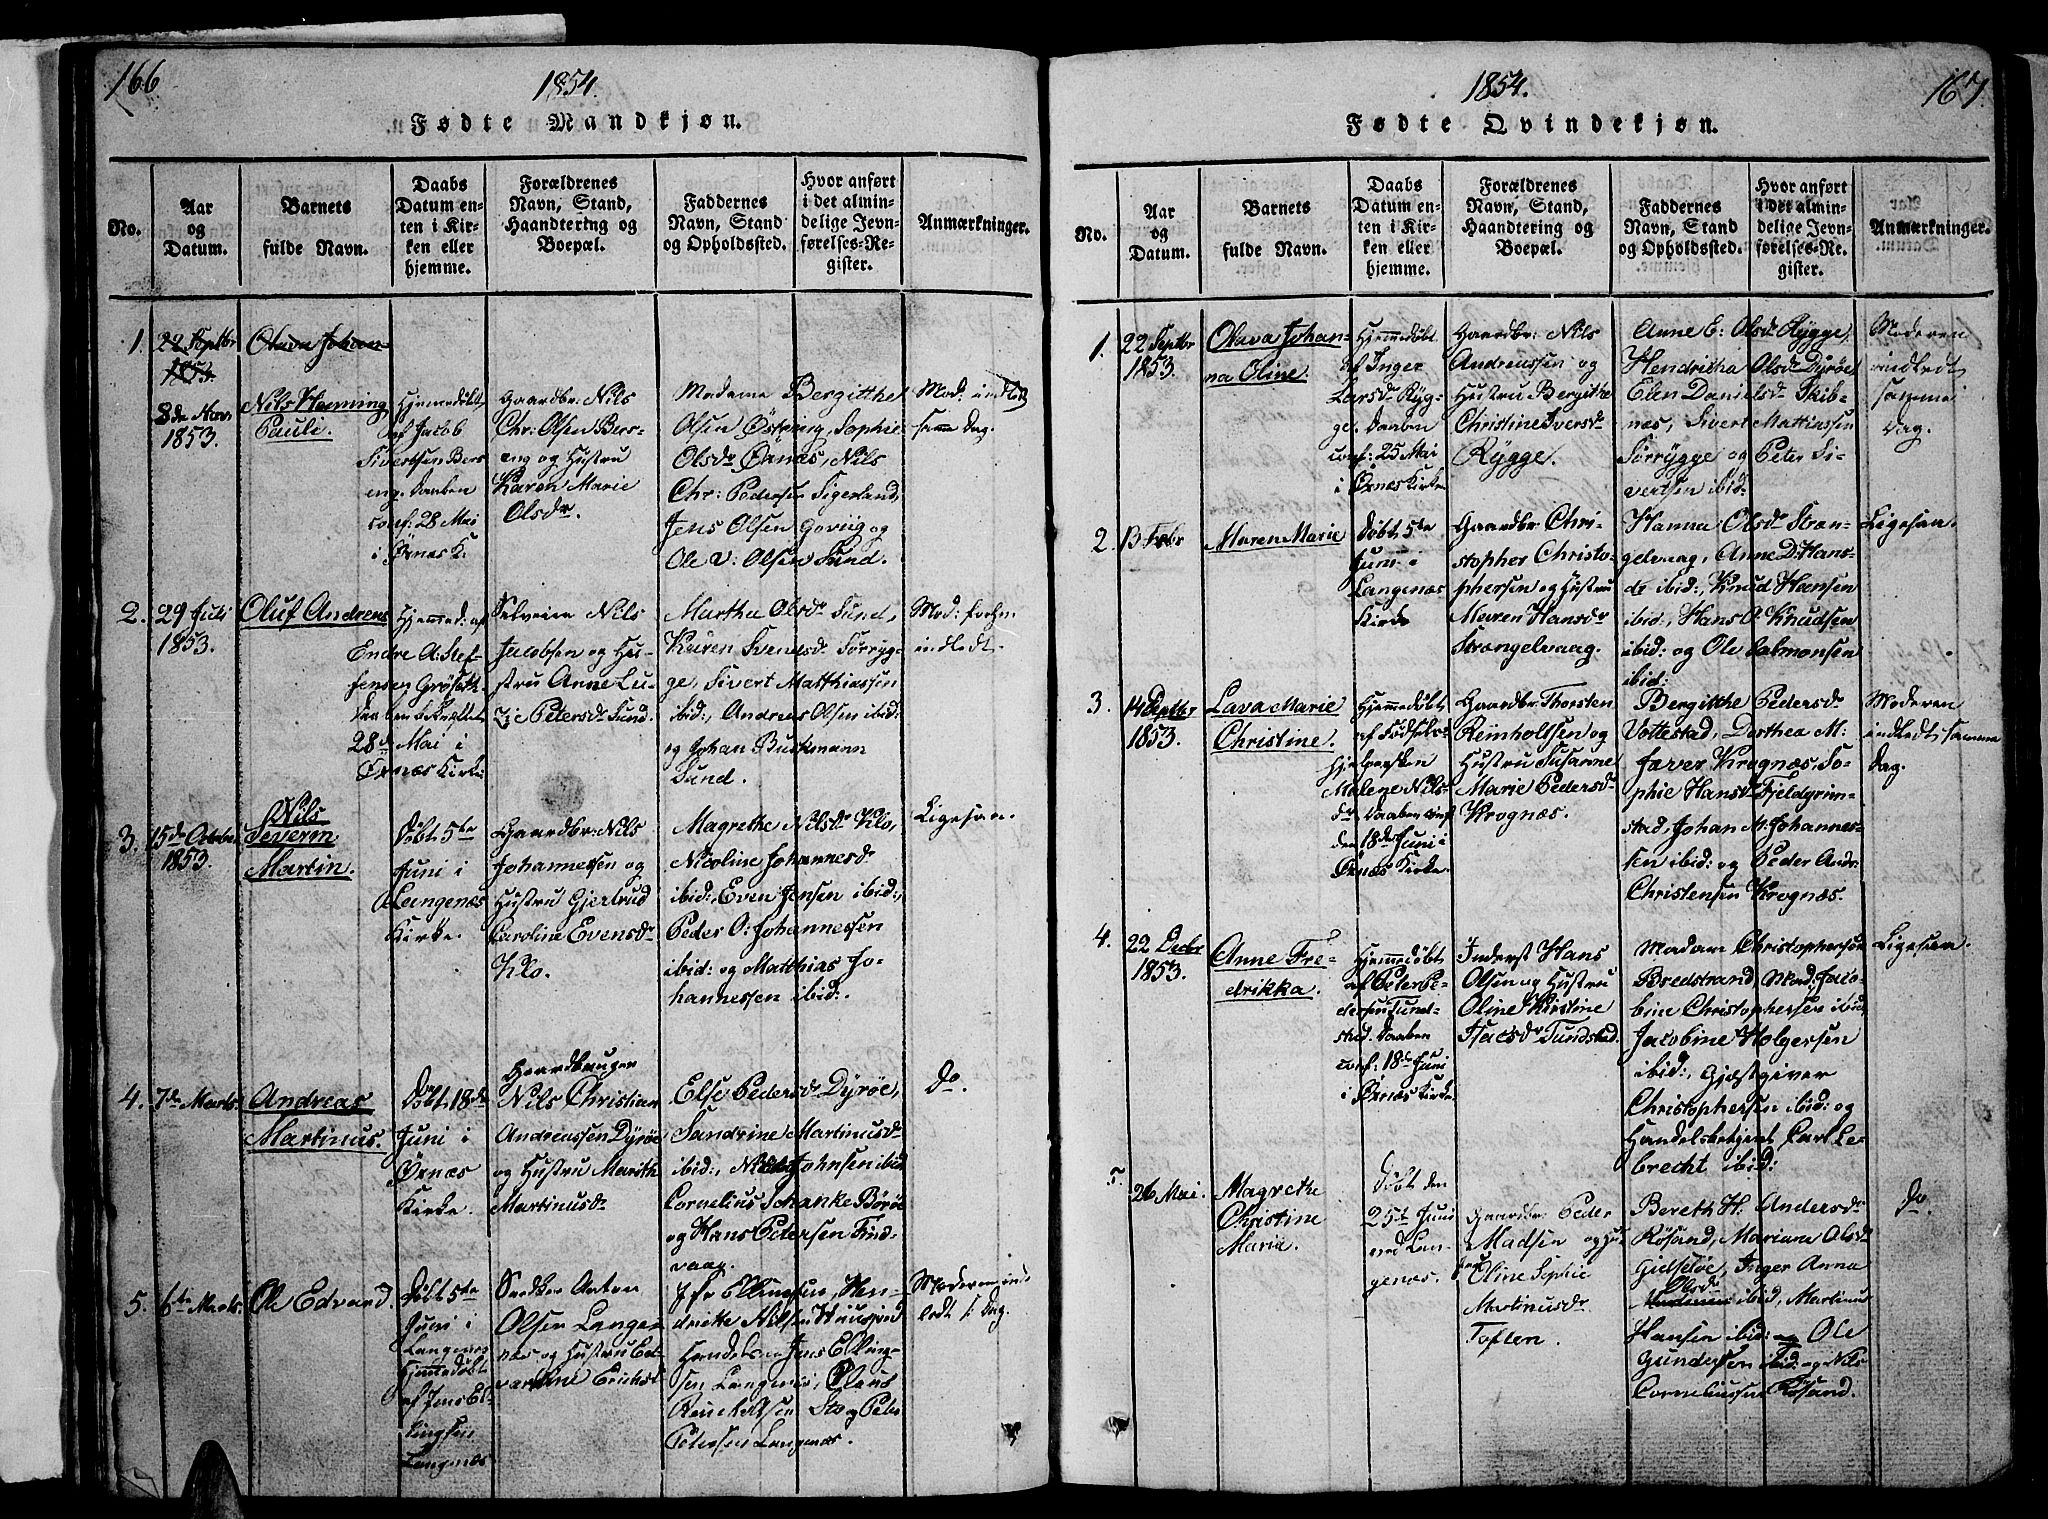 166
1854.
Fødte Mandkjøn.
No.
Aar
og
Datum.
Barnets
fulde Navn.
Daabs
Datum en-
ten i Kir-
ken eller
hjemme.
Forældrenes
Navn, Stand,
Haandtering og
Boepæl.
Faddernes
Navn, Stand
og Opholdssted.
Hvor anført
i det almin-
delige Jevn-
førelses-Re-
gister.
Anmærkninger.
1.
22 Septbr
1853.
8de Nov.
1853.
Olava Johan
Nils Henning
Pauli.
Hjemmedøbt
af Jacob
Sivertsen Bers
eng. Daaben
conf: 28 Mai
i Ørnæs K.
Gaardbr: Nils
Chr: Olsen Bers-
eng og Hustru
Karen Marie
Olsdr.
Madame Bergitthe
Olsen Østving, Sophie
Olsdr Ørnæs, Nils
Chr: Pedersen Sigerland,
Jens Olsen Goving og
Ole V: Olsen Sund.
Mod: indledt
samme Dag.
2.
29 Juli
1853.
Oluf Andreas
Hjemmed: af
Endre A: Stef-
fensen Grøseth.
Daaben bekræftet
28de Mai i
Ørnæs Kirke
Selveier Nils
Jacobsen og Hu-
stru Anne Lu-
zie Petersdr Sund.
Martha Olsdr Sund,
Karen Svensdr Sørryg-
ge, Sivert Matthiassen
ibid:, Andreas Olsen ibid:
og Johan Buckmann
Sund.
Mod: forhen
indledt.
3.
15de October
1853.
Nils
Severin
Martin.
Døbt 5te
Juni i
Langenæs
Kirke.
Gaardbr: Nils
Johannessen og
Hustru Gjertrud
Caroline Evensdr
Klo.
Magrethe Nilsdr Klo,
Nicoline Johannesdr
ibid:, Even Jensen ibid:,
Peder O: Johannessen
ibid: og Matthias Jo-
hannessen ibid:.
Ligesaa.
4.
7de Marts.
Andreas
Martinus.
Døbt 18de
Juni i
Ørnæs
Kirke.
Gaardbruger
Nils Christian
Andreassen Dyrøe
og Hustru Marith
Martinusdr
Else Pedersdr Dyrøe,
Sandrine Martinusdr
ibid:, Nils Johnsen ibid
Cornelius Schanke Børøe
og Hans Petersen Find-
vaag.
Do.
5.
6te Marts.
Ole Edvard.
Døbt 5te
Juni i
Langenæs
Hjemmedøbt
af Jens El-
lingsen
Langnæs
Snedker Anton
Olsen Lange-
næs og Hustru Ed-
vardine Erichsdr
Jfr Ellingsen, Hen-
drikke Nilsen
Jens Elling-
sen Langenæs, Claus
Reinholtsen Sto og Peder
Petersen Langenæs.
Moderen ind-
ledt s: Dag.
1854.
167.
Fødte Qvindekjøn.
No.
Aar
og
Datum.
Barnets
fulde Navn.
Daabs
Datum en-
ten i Kir-
ken eller
hjemme.
Forældrenes
Navn, Stand,
Haandtering og
Boepæl.
Faddernes
Navn, Stand
og Opholdssted.
Hvor anført
i det almin-
delige Jevn-
førelses-Re-
gister.
Anmærkninger.
1.
22 Septbr
1853.
Olava Johan-
na Oline.
Hjemmedøbt
af Inger
Larsdr Ryg-
ge. Daaben
conf: 25 Mai
i Ørnæs Kirke
Gaardbr: Nils
Andreassen og
Hustru Bergithe
Christine Iversdr
Rygge.
Anne E: Olsdr Rygge,
Hendrikka Olsdr Dyrøe
Elen Danielsdr Skib-
næs, Sivert Mattiassen
Sørrygge og Peter Si-
vertsen ibid:
Moderen
indledt
samme
Dag.
2.
13 Febr
Maren Marie
Døbt 5te
Juni i
Langenæs
Kirke
Gaardbr: Chri-
stopher Christo-
phersen og Hustru
Maren Hansdr
Strængelvaag.
Hanna Olsdr Stræn-
gelvaag, Anne D: Hans-
dr ibid:, Knud Hansen
ibid:, Hans O: Knudsen
ibid: og Ole Salmonsen
ibid:
Ligesaa.
3.
14 Septbr
1853.
Lava Marie
Christine.
Hjemmedøbt
af Fødsels-
hjelpersken
Malene Nils-
dr Daaben conf
den 18de Juni i
Ørnæs Kirke.
Gaardbr: Thorsten
Reinholtsen og
Hustru Susanne
Marie Pedersdr
Krognæs.
Bergitthe Pedersdr
Vottestad, Dorthea M:
Jæver Krognæs, So-
phie Hansdr Fjeldgrim-
stad, Johan M: Johannes-
sen ibid: og Peder Andr:
Christensen Krognæs.
Moderen
indledt samme
Dag.
4.
22 Decbr
1853.
Anne Fre-
drikka.
Hjemmedøbt
af Peter Pe-
dersen Tund-
stad. Daaben
conf: 18de Juni
i Ørnæs Kirke.
Inderst Hans
Olsen og Hustru
Oline Kirstine
Isacsdr Tundstad.
Madam Christophersen
Bredstrand, Mad: Jaco-
bine Christophersen ibid,
Jacobine Holgersen
ibid:, Gjæstgiver
Christophersen ibid: og
Handelsbetjent Carl Le-
brecht ibid:
Ligesaa.
5.
26 Mai.
Magrethe
Christine
Maria.
Døbt den
25te Juni
ved Lan-
genæs.
Gaardbr: Peder
Madsen og Hu-
stru Oline Sophie
Martinusdr
Toften.
Bereth H: Andersdr
Røsand, Mariane Olsdr
Guldstøe, Inger Anna
Olsdr
ibid, Martinus
Hansen ibid: og Ole
Gundersen ibid: og Nils
Corneliussen Røsand.
Do.